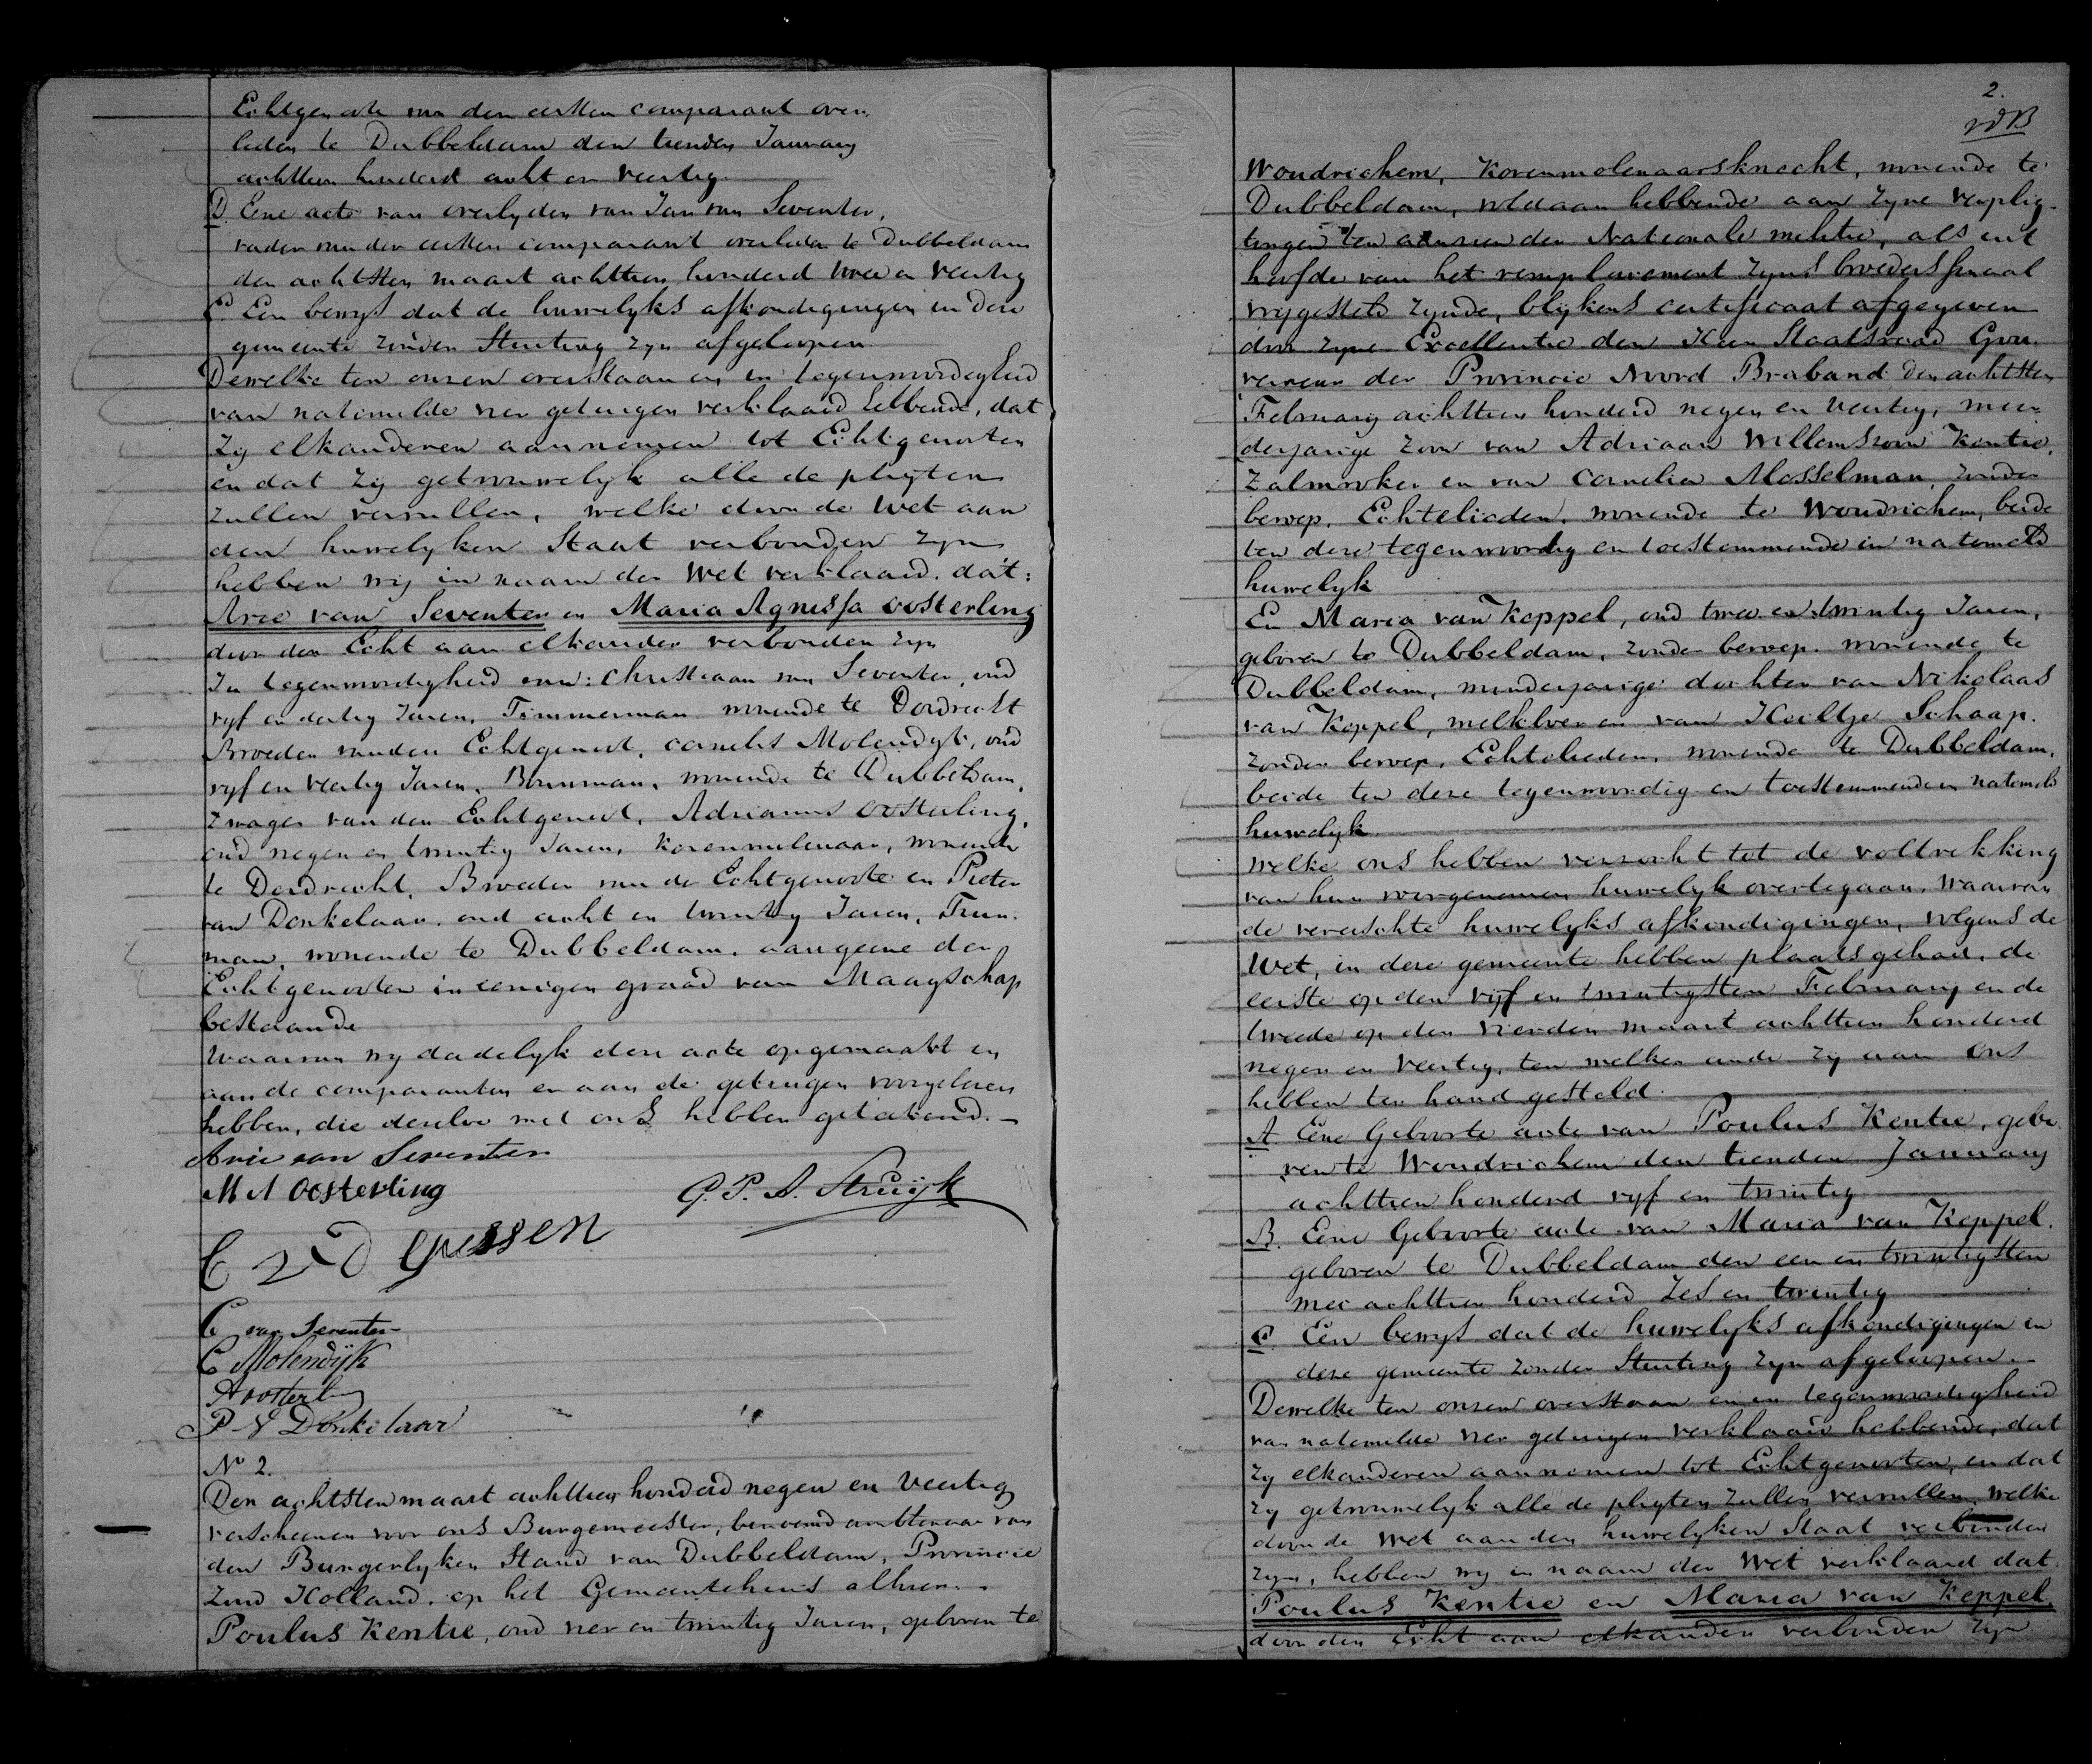 Echtgenote van den eersten comparant over
leden te Dubbeldam den tienden January
achttien honderd acht en veertig.
D. Eene acte van overlyden van Jan van Seventer,
vader van den eersten comparant overleden te Dubbeldam
den achtsten maart achttien honderd twee en veertig
E. Een bewys dat de huwelyks afkondigingen in deze
gemeente zonder Stuiting zyn afgeloopen.
Dewelke ten onzen overstaan en in tegenwoordigheid
van natemelde vier getuigen verklaard hebbende, dat
zy elkanderen aannemen tot Echtgenooten
en dat zy getrouwelyk alle de pligten
zullen vervullen, welke door de Wet aan
den huwelyken Staat verbonden zyn
hebben wij in naam der Wet verklaard. dat:
Arie van Seventer en Maria Agnissa Oosterling
door den Echt aan elkander verbonden zyn
In tegenwoordigheid van: Christiaan van Seventer, oud
vyf en dertig Jaren, Timmerman wonende te Dordrecht
Broeder van den Echtgenoot, Cornelis Molendyk, oud
vyf en veertig Jaren, Bouwman, wonende te Dubbeldam,
Zwager van den Echtgenoot, Adrianus Oosterling,
oud negen en twintig Jaren, Korenmolenaar, wonende
te Dordrecht, Broeder van de Echtgenoote en Pieter
van Donkelaar, oud acht en twintig Jaren, Tuin
man, wonende te Dubbeldam, aan geene der
Echtgenooten in eenigen graad van Maagschap
bestaande
Waarvan wy dadelyk deze acte opgemaakt en
aan de comparanten en aan de getuigen voorgelezen
hebben, die dezelve met ons hebben getekend.
Arie van Seventer
M A Oosterling G. P. A. Struijk
C v D Giessen
C van Seventer
C Molendijk
A oosterling
P V Donkelaar
No 2.
Den achtsten maart achttien honderd negen en veertig
verscheenen voor ons Burgemeester, benoemd ambtenaar van
den Burgerlyken Stand van Dubbeldam, Provincie
Zuid Holland, op het Gemeentehuis alhier.
Poulus Kentie, oud vier en twintig Jaren, geboren te
2.
vdB
Woudrichem, Korenmolenaarsknecht, wonende te
Dubbeldam, voldaan hebbende aan zyne verplig
tingen ten aanzien der Nationale militie, als uit
hoofde van het remplacement zyns broeders finaal
vrijgesteld zynde, blijkens certificaat afgegeven
door zyne Excellentie den Heer Staatsraad Gou
verneur der Provincie Noord Braband den achtsten
February achttien honderd negen en veertig, meer
derjarige zoon van Adriaan Willemszoon Kentie,
Zalmrooker en van Cornelia Mosselman, zonder
beroep, Echtelieden, wonende te Woudrichem, beide
ten deze tegenwoordig en toestemmende in natemeld
huwelyk
En Maria van Keppel, oud twee en twintig Jaren,
geboren te Dubbeldam, zonder beroep, wonende te
Dubbeldam, minderjarige dochter van Nikolaas
van Keppel, melkboer en van Heiltje Schaap,
zonder beroep, Echtelieden, wonende te Dubbeldam,
beide ten deze tegenwoordig en toestemmende in natemeld
huwelyk.
welke ons hebben verzocht tot de voltrekking
van hun voorgenomen huwelyk overtegaan, waarvan
de vereischte huwelyks afkondigingen, volgens de
Wet, in deze gemeente hebben plaats gehad, de
eerste op den vyf en twintigsten February en de
tweede op den vierden maart achttien honderd
negen en veertig, ten welken einde zy aan ons
hebben ter hand gesteld.
A. Eene Geboorte acte van Poulus Kentie, gebo
ren te Woudrichem den tienden January
achttien honderd vyf en twintig
B. Eene Geboorte acte van Maria van Keppel,
geboren te Dubbeldam den een en twintigsten
mei achttien honderd zes en twintig
C. Een bewys dat de huwelyks afkondigingen in
deze gemeente zonder Stuiting zyn afgeloopen.
Dewelke ten onzen overstaan en in tegenwoordigheid
van natemelde vier getuigen verklaard hebbende, dat
zy elkanderen aannemen tot Echtgenooten, en dat
zy getrouwelyk alle de pligten zullen vervullen, welke
door de Wet aan den huwelyken Staat verbonden
zyn, hebben wy in naam der Wet verklaard dat.
Poulus Kentie en Maria van Keppel,
door den Echt aan elkander verbonden zyn